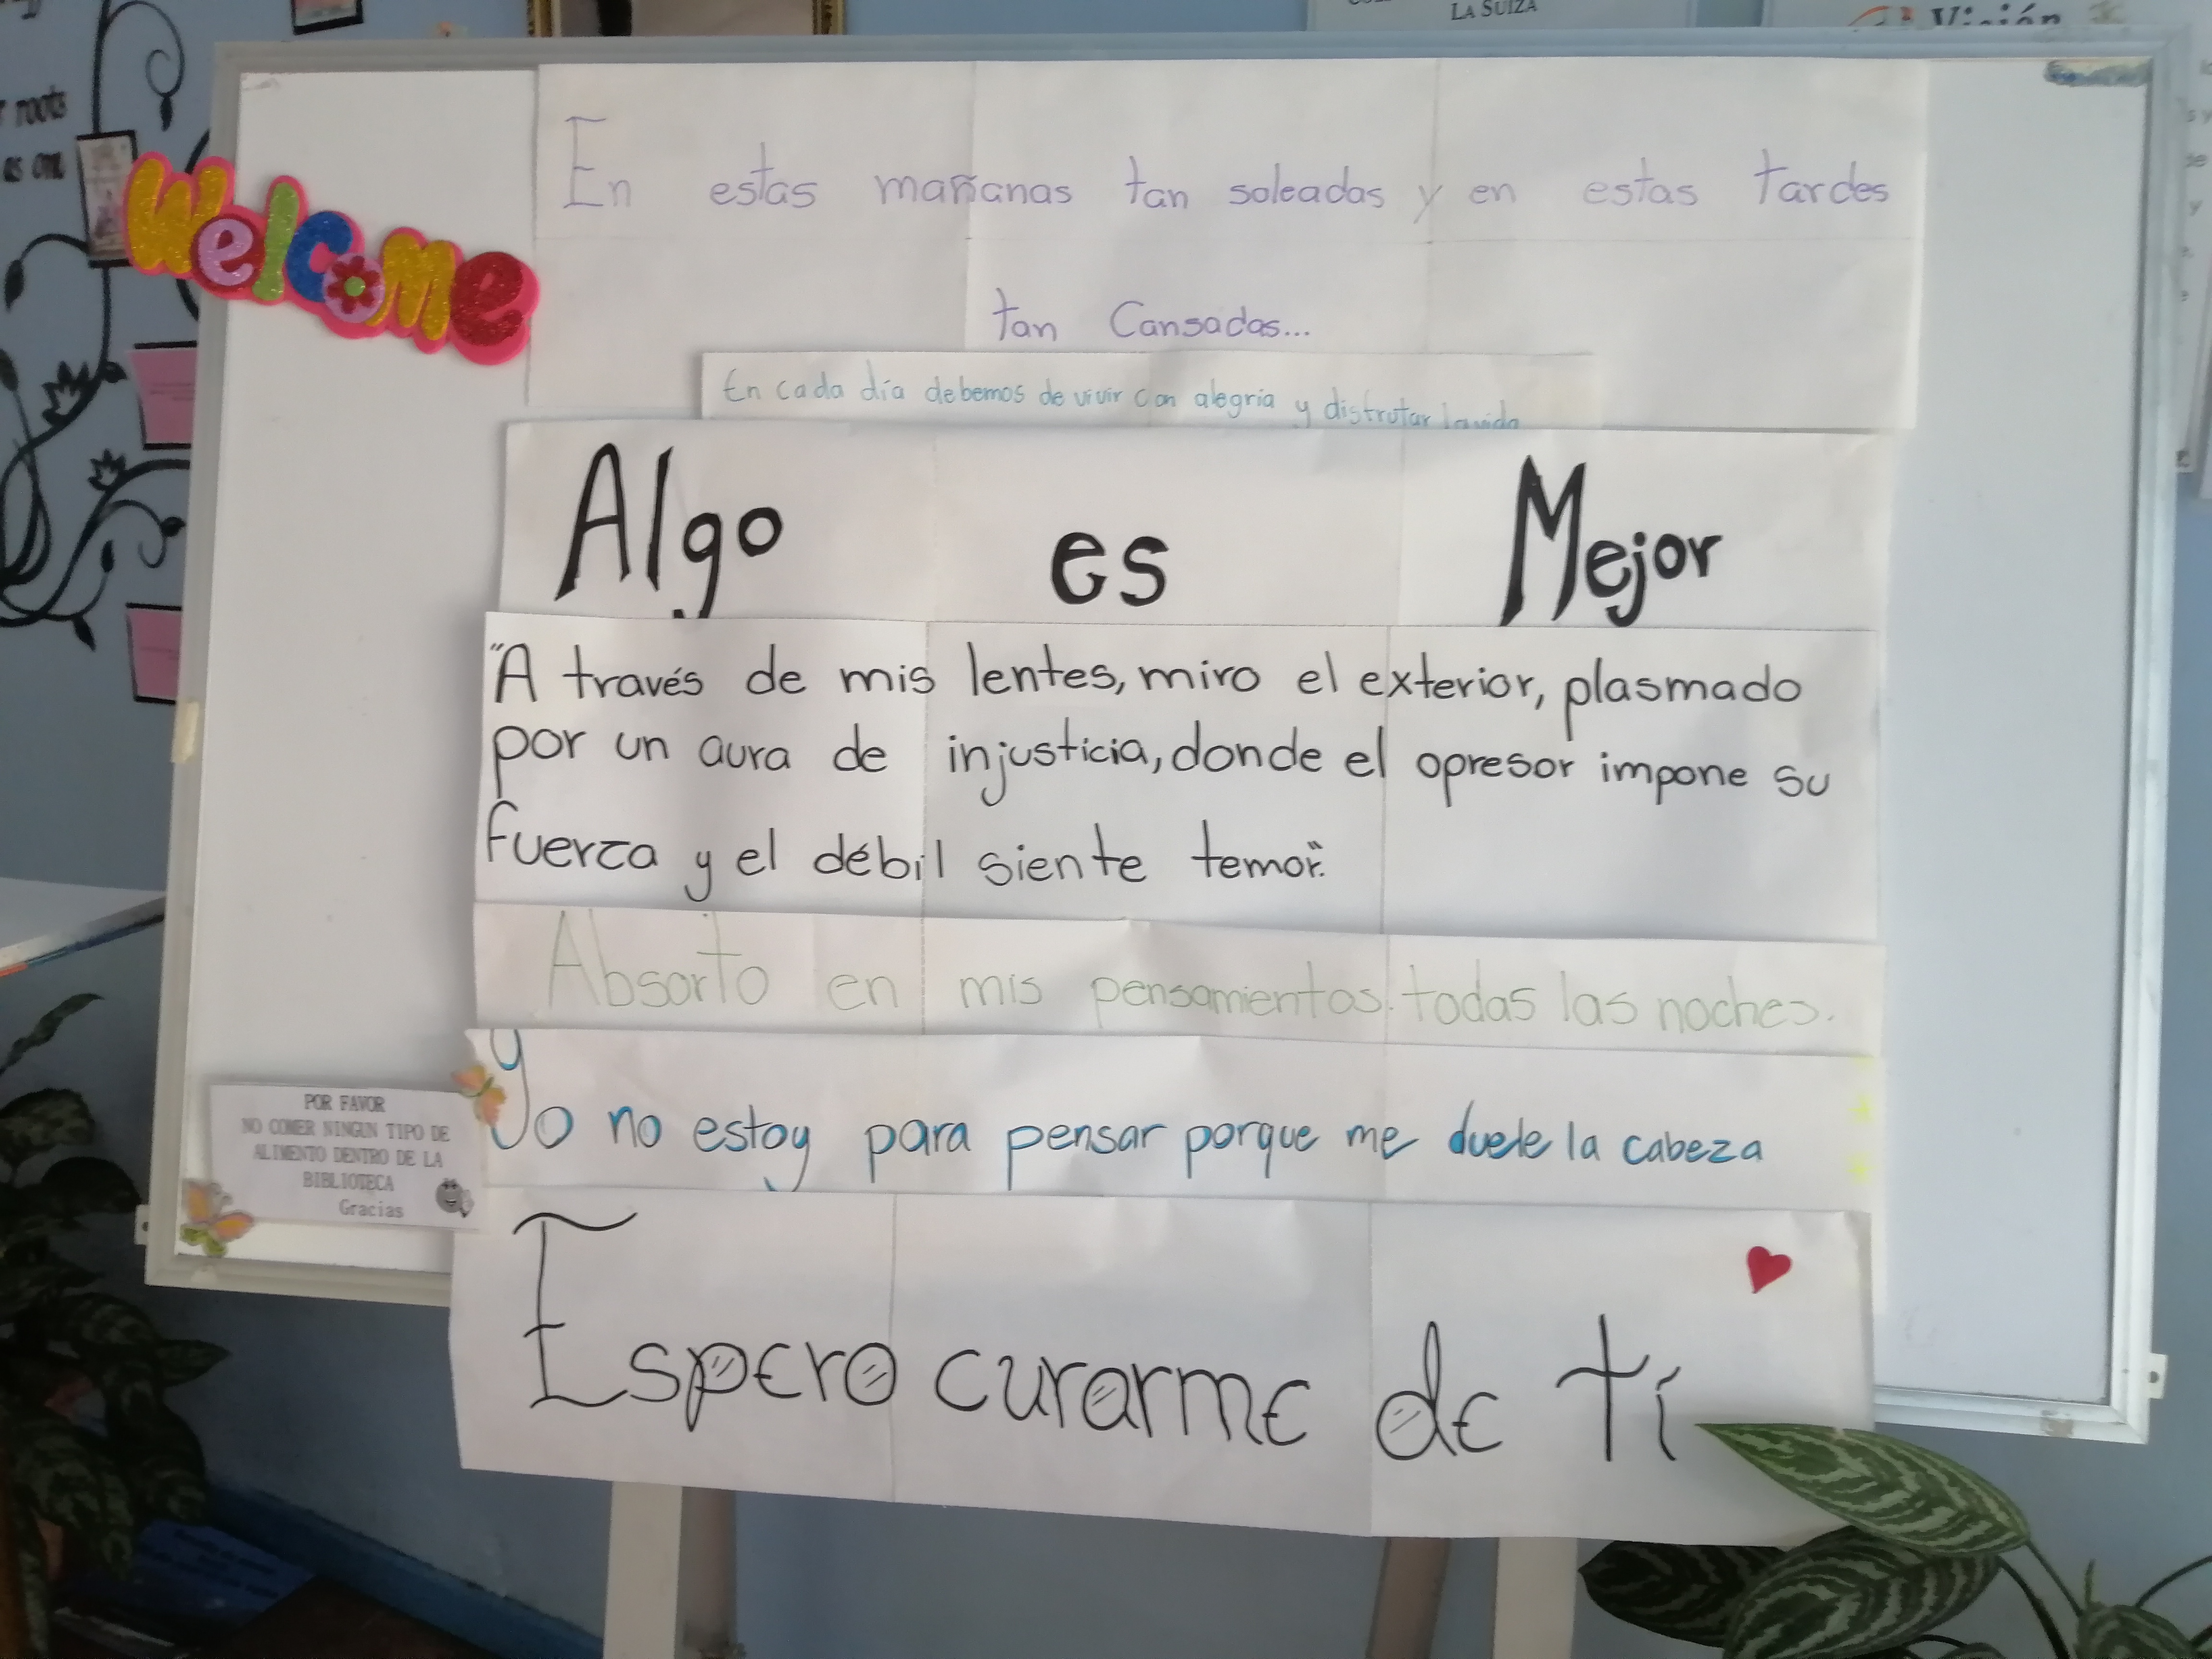 LA SUIZA
Visión
roots
as one
Welcome
En estas mañanas tan soleadas y en estas tardes
tan Cansadas...
En cada día debemos de vivir con alegria y disfrutar la vida
Algo es Mejor
"A través de mis lentes, miro el exterior, plasmado
por un aura de injusticia, donde el opresor impone su
fuerza y el débil siente temor".
Absorto en mis pensamientos todas las noches.
Yo no estoy para pensar porque me duele la cabeza
POR FAVOR
NO COMER NINGUN TIPO DE
ALIMENTO DENTRO DE LA
BIBLIOTECA
Gracias
Espero curarme de ti